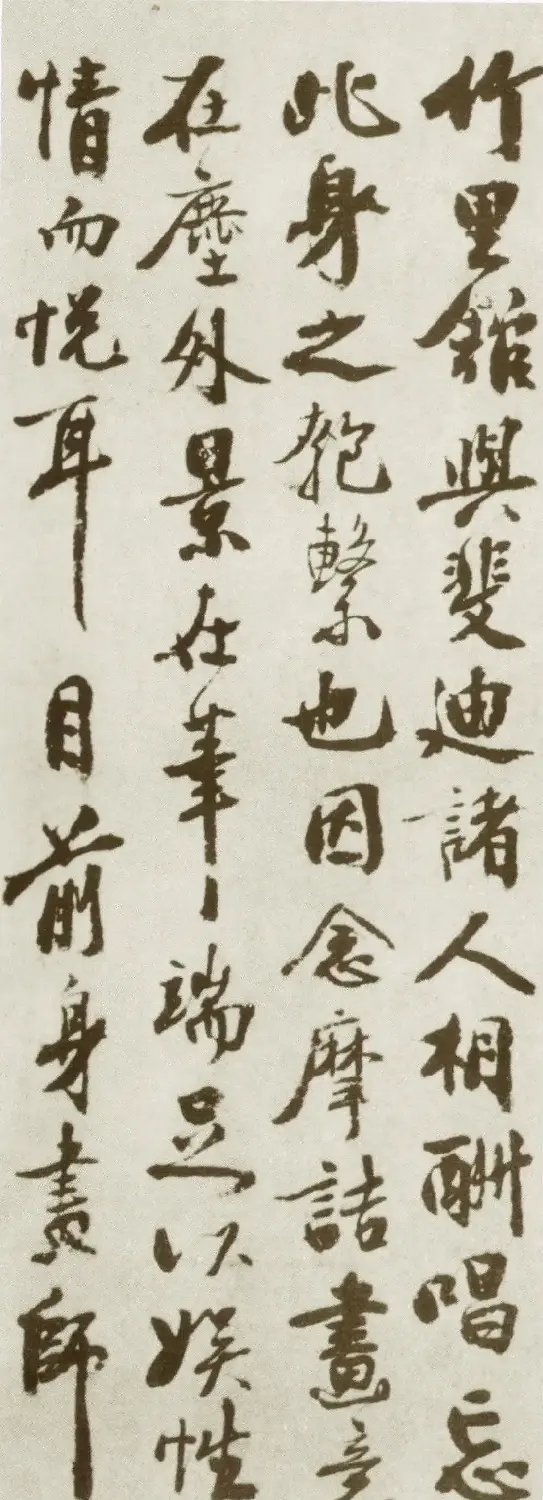 竹里館與斐迪諸人相酬唱忘
此身之匏繫也因念摩詰畫意
在塵外景在筆端足以娱性
情而悦耳目前身畫師